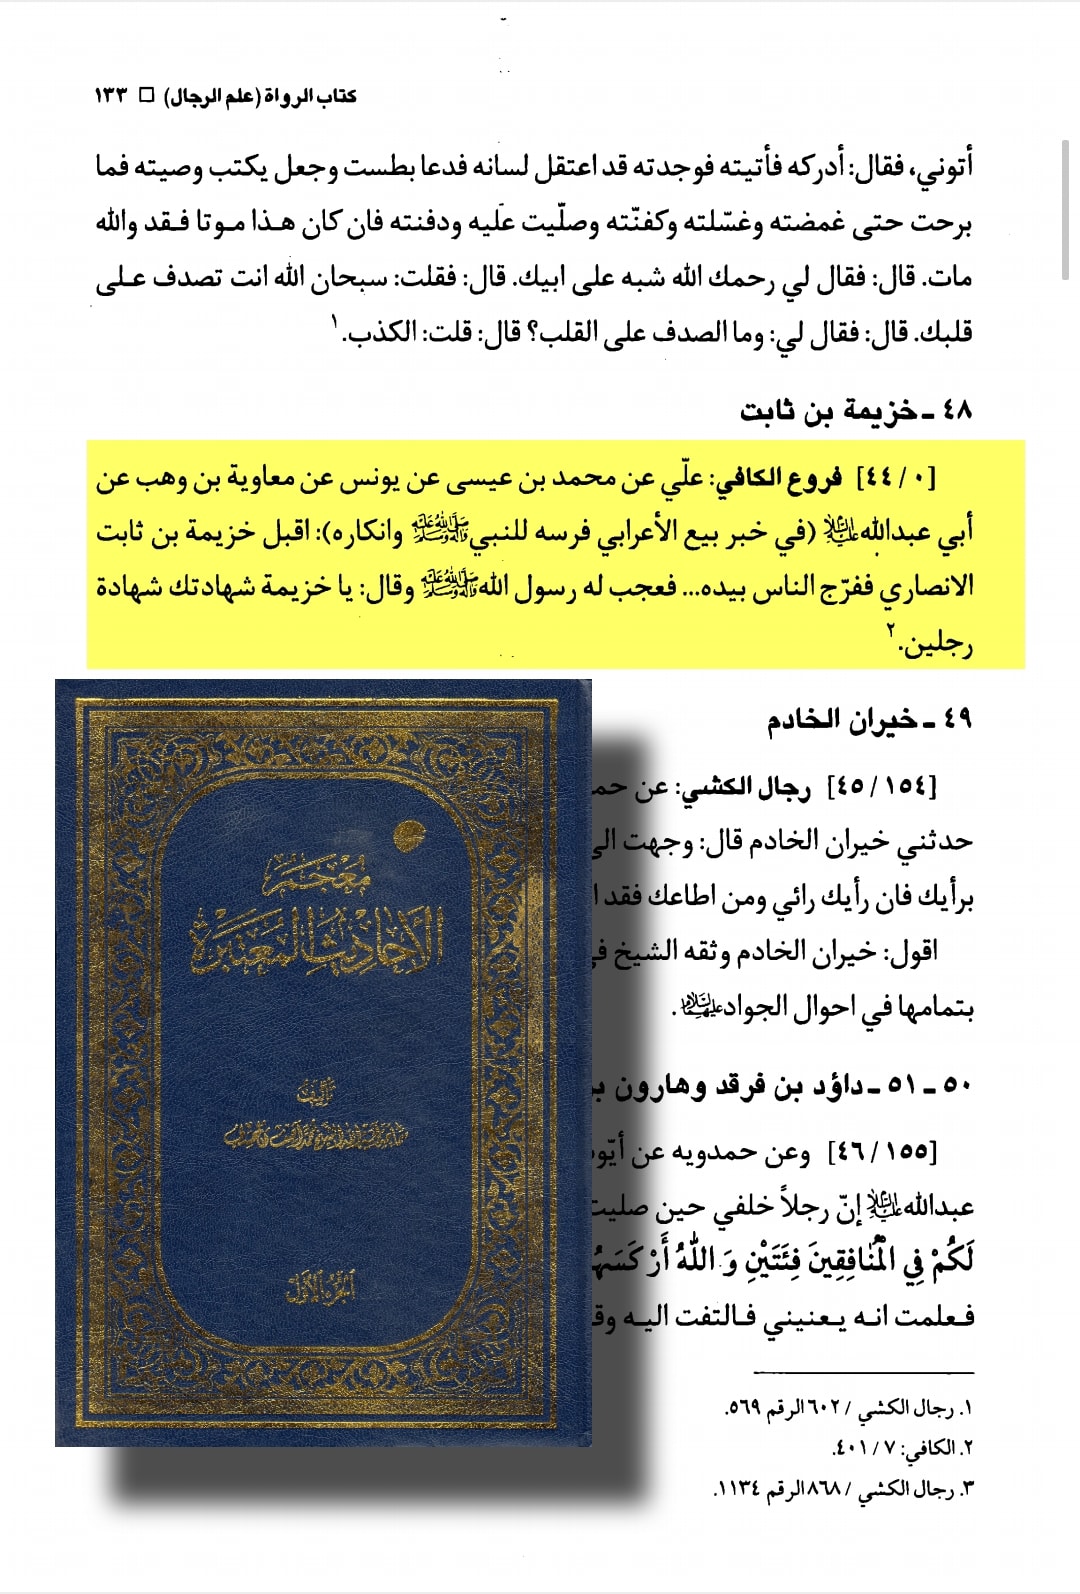 كتاب الرواة (علم الرجال) □ ١٣٣
أتوني، فقال: أدركه فأتيته فوجدته قد اعتقل لسانه فدعا بطست وجعل يكتب وصيته فما
برحت حتى غمضته وغسّلته وكفنّته وصلّيت عليه ودفنته فان كان هـذا مـوتا فـقد والله
مات. قال: فقال لي رحمك الله شبه على ابيك. قال: فقلت: سبحان الله انت تصدف عـلـى
قلبك. قال: فقال لي: وما الصدف على القلب؟ قال: قلت: الكذب.١
٤٨ ـ خزيمة بن ثابت
[٠ / ٤٤] فروع الكافي: علّي عن محمد بن عيسى عن يونس عن معاوية بن وهب عن
أبي عبدالله عليه السلام (في خبر بيع الأعرابي فرسه للنبي صلى الله عليه وآله وسلم وانكاره): اقبل خزيمة بن ثابت
الانصاري ففرّج الناس بيده... فعجب له رسول الله صلى الله عليه وآله وسلم وقال: يا خزيمة شهادتك شهادة
رجلين.٢
٤٩ ـ خيران الخادم
[١٥٤ / ٤٥] رجال الكشي: عن
حدثني خيران الخادم قال: وجهت
برأيك فان رأيك رائي ومن اطاعك فقد
اقول: خيران الخادم وثقه الشيخ
بتمامها في احوال الجواد عليه السلام.
٥٠ ـ ٥١ ـ داؤد بن فرقد وهارون
[١٥٥ / ٤٦] وعن حمدويه عن
عبدالله عليه السلام إنّ رجلاً خلفي حين
لَكُمْ فِي الْمُنَافِقِينَ فِئَتَيْنِ وَ اللهُ
فـعلمت انـه يـعنيني فـالتفت اليـه
١. رجال الكشي / ٦٠٢ الرقم ٥٦٩.
٢. الكافي: ٧ / ٤٠١.
٣. رجال الكشي / ٨٦٨ الرقم ١١٣٤.
مُعْجَم
الأحاديث المعتبرة
تأليف
الجزء الأول